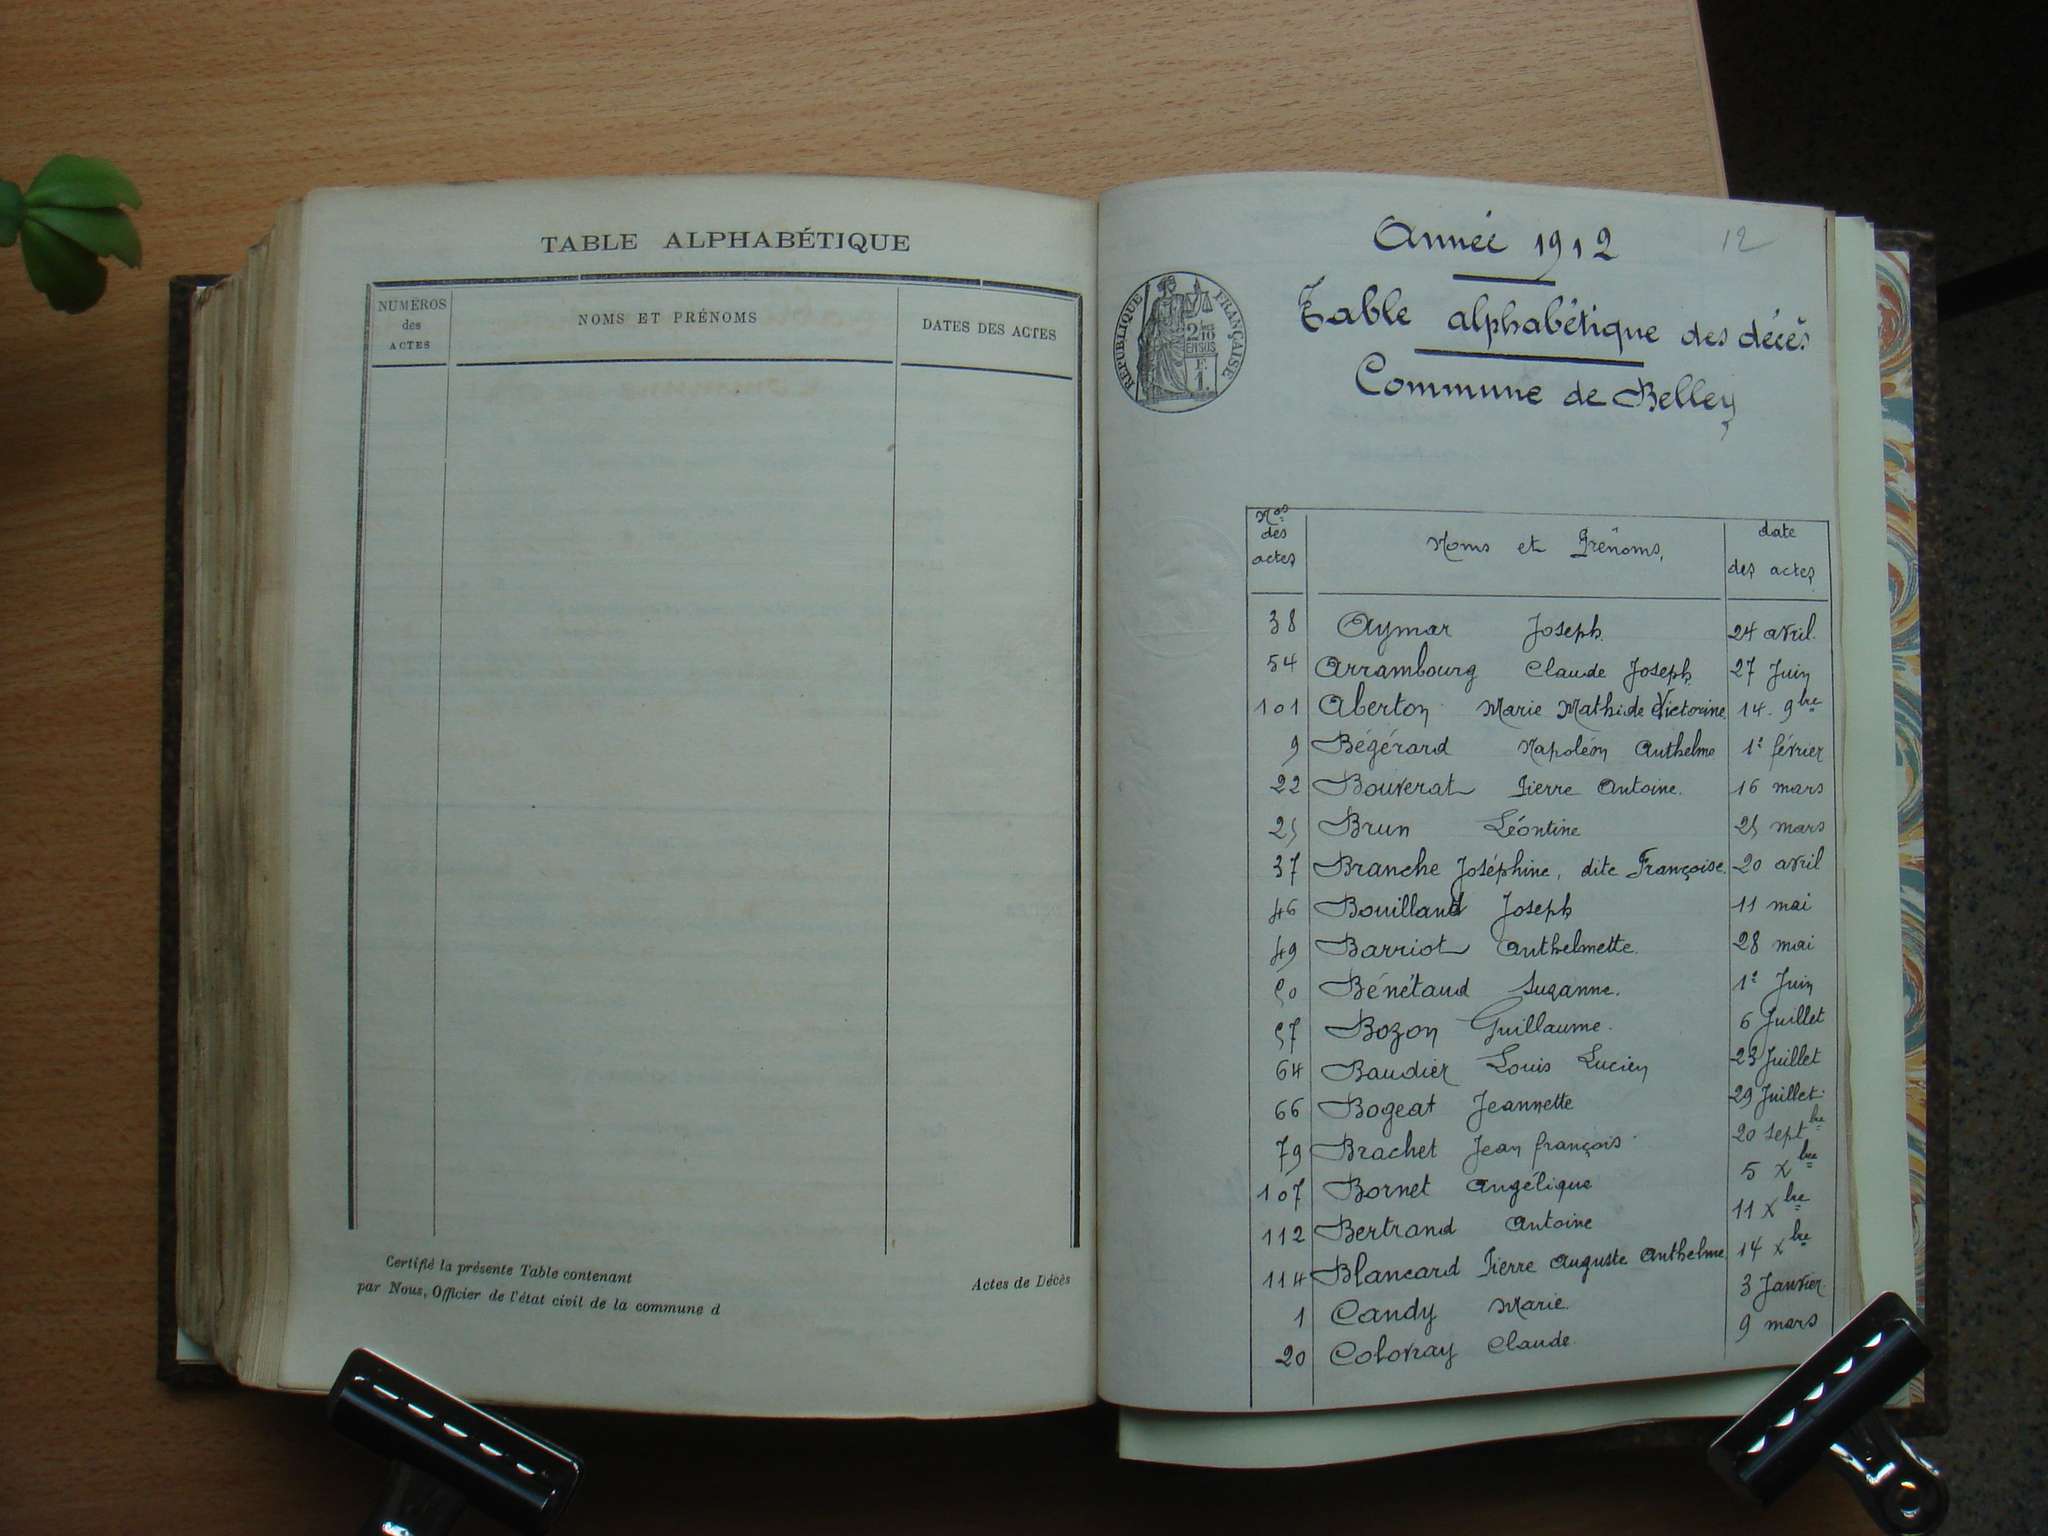 TABLE ALPHABÉTIQUE
NUMÉROS des ACTES
NOMS ET PRÉNOMS
DATES DES ACTES
Certifié la présente Table contenant
Actes de Décès
par Nous, Officier de l'état civil de la commune d
Année 1912
12
RÉPUBLIQUE FRANÇAISE
2/10
EN SUS
F.
1.
Table alphabétique des décès
Commune de Belley
Nos des actes
Noms et Prénoms,
date des actes
38 Aymar Joseph 24 avril.
54 Arrambourg Claude Joseph 27 Juin
101 Aberton Marie Mathide Victorine 14. 9bre
9 Bégérard Napoléon Anthelme 1er février
22 Bouverat Pierre Antoine. 16 mars
25 Brun Léontine 25 mars
37 Branche Joséphine, dite Françoise. 20 avril
46 Bouilland Joseph 11 mai
49 Barriot Anthelmette. 28 mai
50 Bénétaud Suzanne. 1er Juin
57 Bozon Guillaume. 6 Juillet
64 Baudier Louis Lucien 23 Juillet
66 Bogeat Jeannette 29 Juillet.
79 Brachet Jean françois 20 septbre
107 Bornet Angélique 5 Xbre
112 Bertrand Antoine 11 Xbre
114 Blancard Pierre Auguste Anthelme 14 Xbre
1 Candy Marie. 3 Janvier.
20 Colovray Claude 9 mars